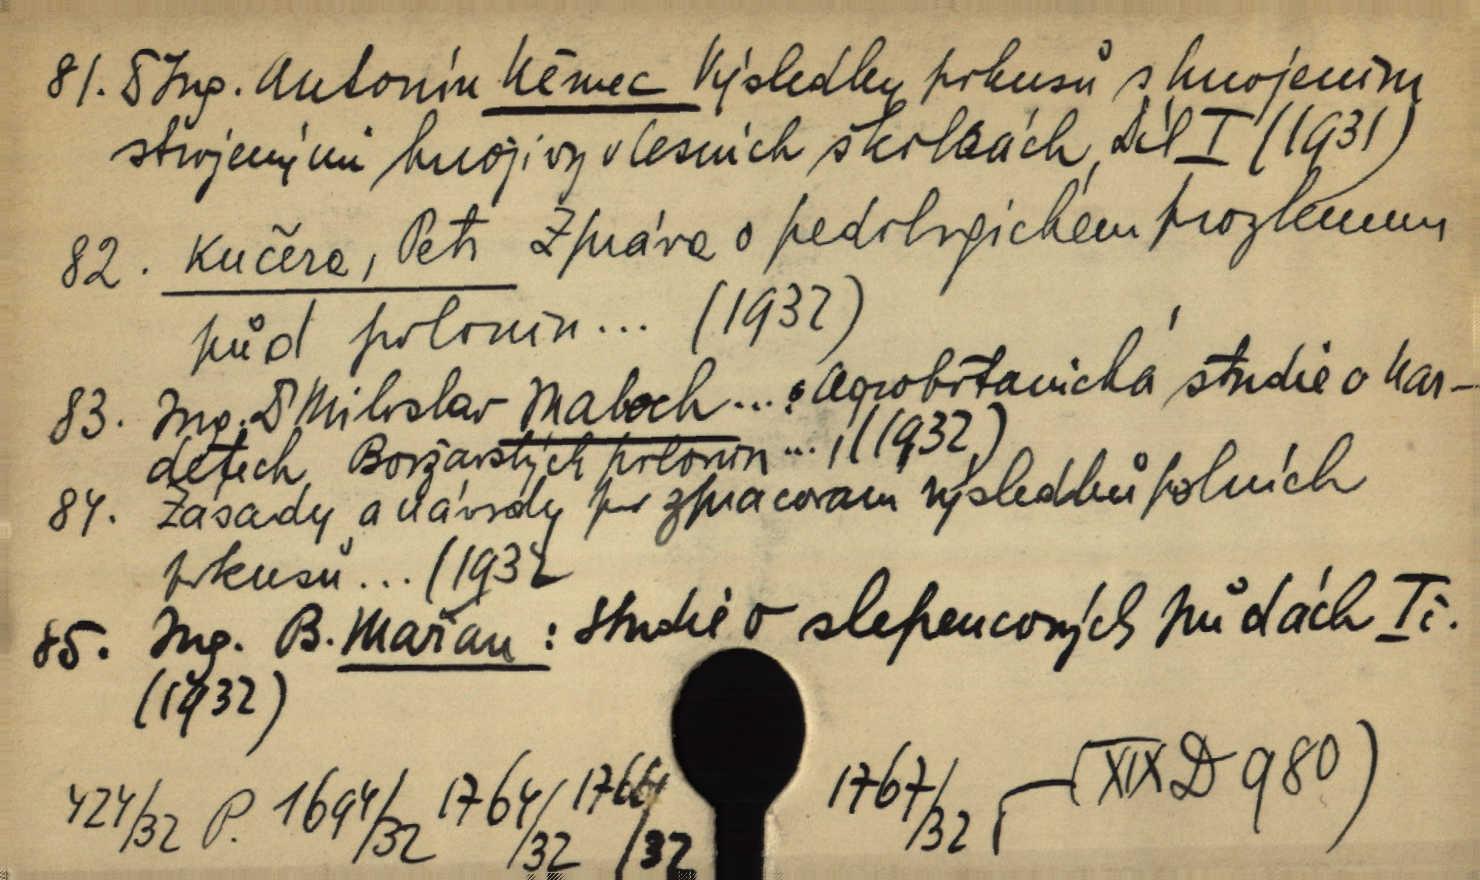 81. Dr Ing. Antonín Němec Výsledky pokusů s hnojením
strojenými hnojivy v lesních školkách, Díl I (1931)
82. Kučera, Petr Zpráva o pedologickém prozkumu
půd polonin ... (1932)
83. Ing. Dr Miloslav Maloch ... : Agrobotanická studie o nar-
detech Boržavských polonin ... (1932)
84. Zásady a návody pro zpracování výsledků polních
pokusů ... (1932
85. Ing. B. Mařan : Studie o slepencových půdách Ič.
(1932)
424/32 P. 1694/32 1764/32 1766/32 1767/32 (XIX D 980)